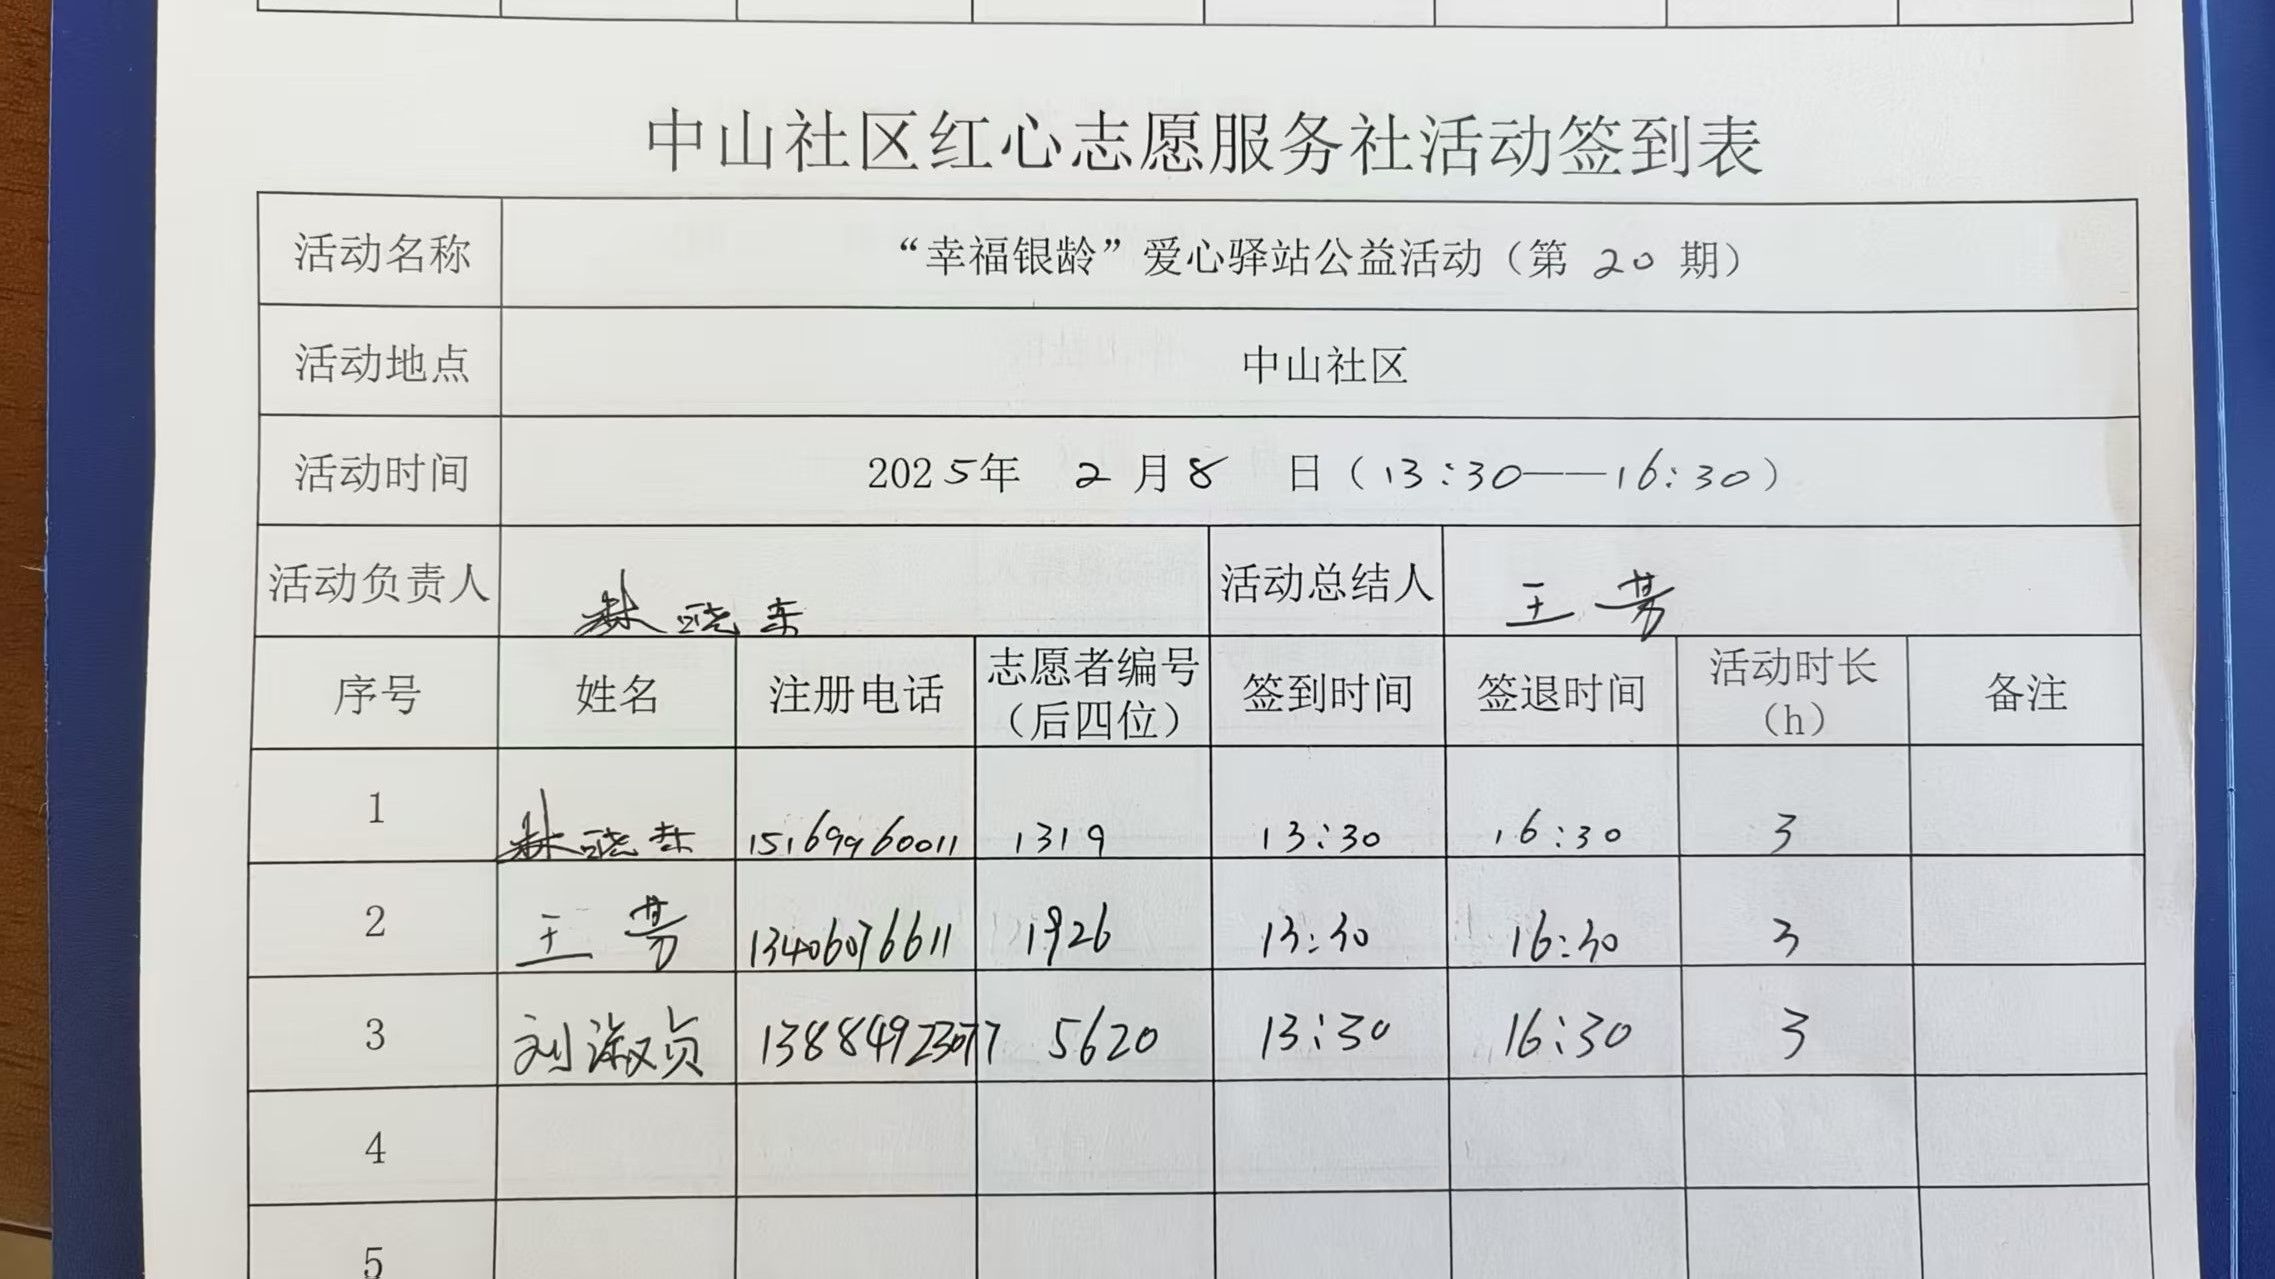 中山社区红心志愿服务社活动签到表
活动名称 “幸福银龄”爱心驿站公益活动（第 20 期）
活动地点 中山社区
活动时间 2025年 2 月 8 日（13:30——16:30）
活动负责人 林晓东 活动总结人 王芳
序号 姓名 注册电话 志愿者编号（后四位） 签到时间 签退时间 活动时长（h） 备注
1 林晓东 15169960011 1319 13:30 16:30 3
2 王芳 13406076611 1926 13:30 16:30 3
3 刘淑贞 13884923077 5620 13:30 16:30 3
4
5